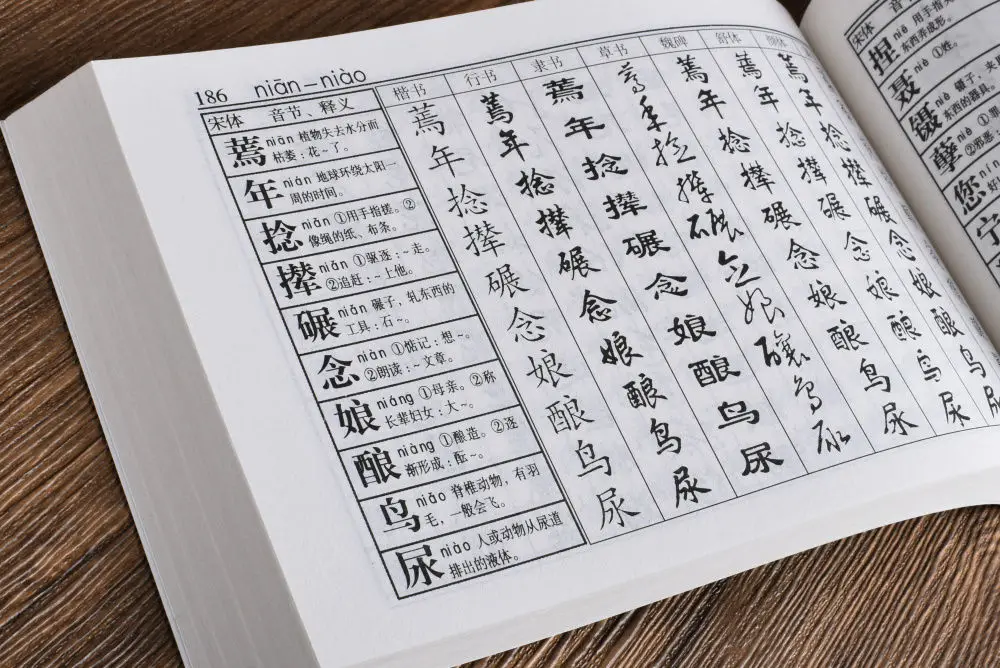 186 niān—niào
宋体 音节、释义 楷书 行书 隶书 草书 魏碑 舒体 颜体
蔫 niān 植物失去水分而
枯萎：花～了。
蔫 蔫 蔫 蔫 蔫 蔫 蔫
年 nián 地球环绕太阳一
周的时间。
年 年 年 年 年 年 年
捻 niǎn ①用手指搓。②
像绳的纸、布条。
捻 捻 捻 捻 捻 捻 捻
撵 niǎn ①驱逐：～走。
②追赶：～上他。
撵 撵 撵 撵 撵 撵 撵
碾 niǎn 碾子，轧东西的
工具：石～。
碾 碾 碾 碾 碾 碾 碾
念 niàn ①惦记：想～。
②朗读：～文章。
念 念 念 念 念 念 念
娘 niáng ①母亲。②称
长辈妇女：大～。
娘 娘 娘 娘 娘 娘 娘
酿 niàng ①酿造。②逐
渐形成：酝～。
酿 酿 酿 酿 酿 酿 酿
鸟 niǎo 脊椎动物，有羽
毛，一般会飞。
鸟 鸟 鸟 鸟 鸟 鸟 鸟
尿 niào 人或动物从尿道
排出的液体。
尿 尿 尿 尿 尿 尿 尿
宋体
捏 niē 用手指
东西弄成形。
聂 niè ①姓。
镊 niè 镊子，夹
东西的器具。
孽 niè
②邪恶
您
宁